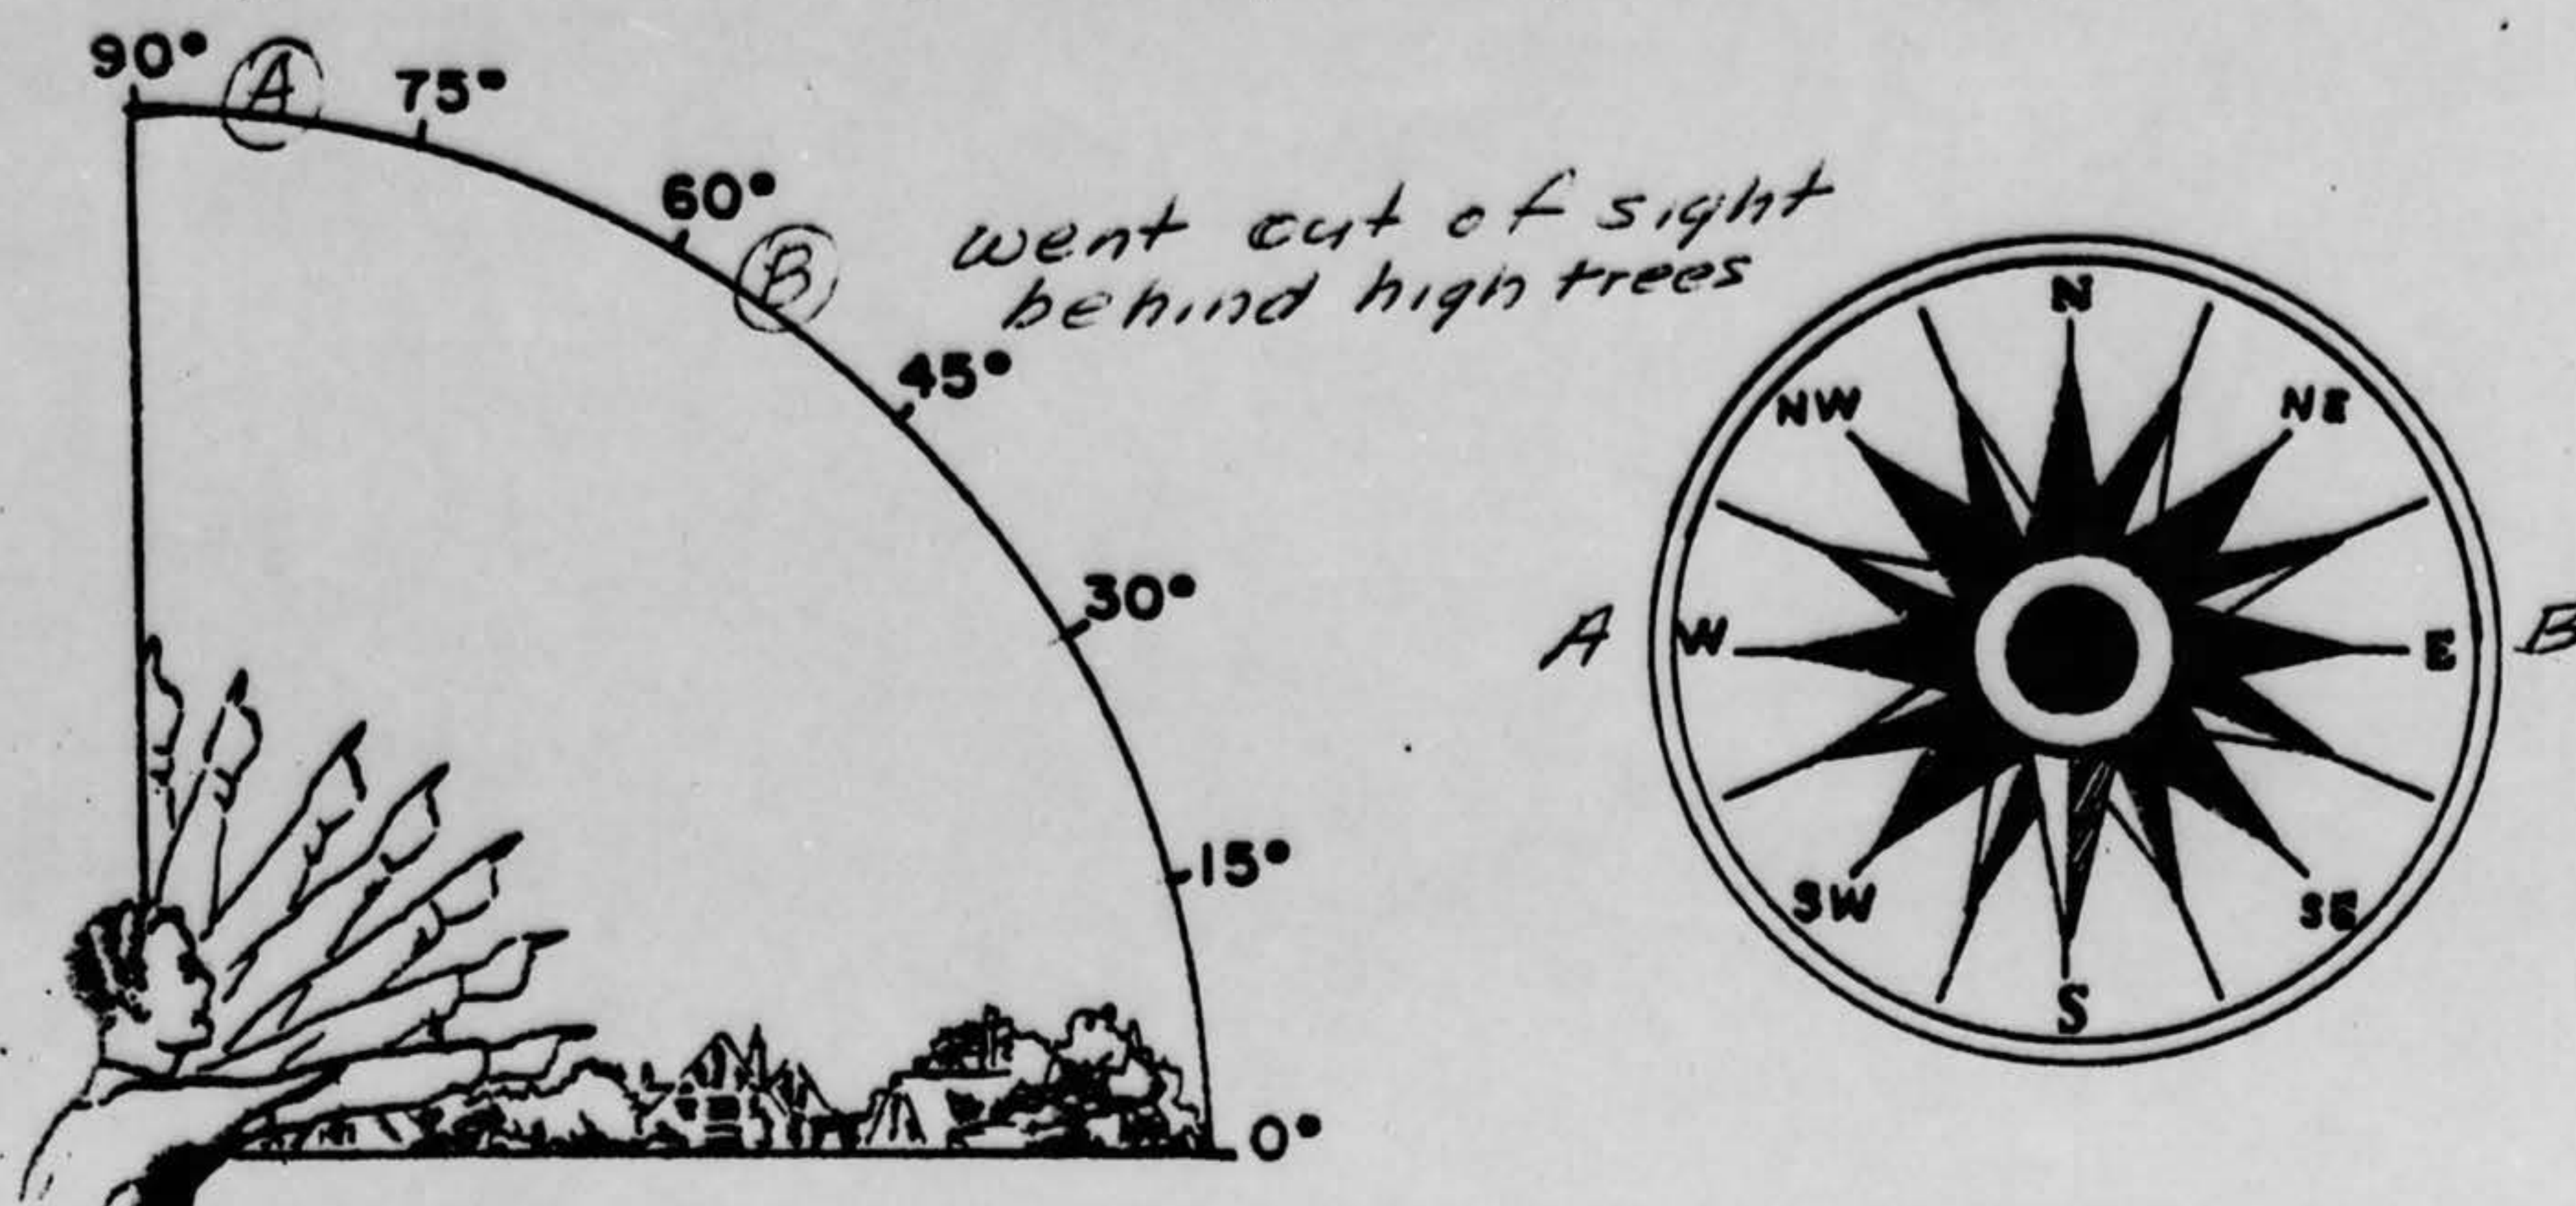 90°
A
75°
60°
B
went out of sight
behind high trees
45°
30°
15°
0°
N
NW
NE
A
W
E
B
SW
SE
S